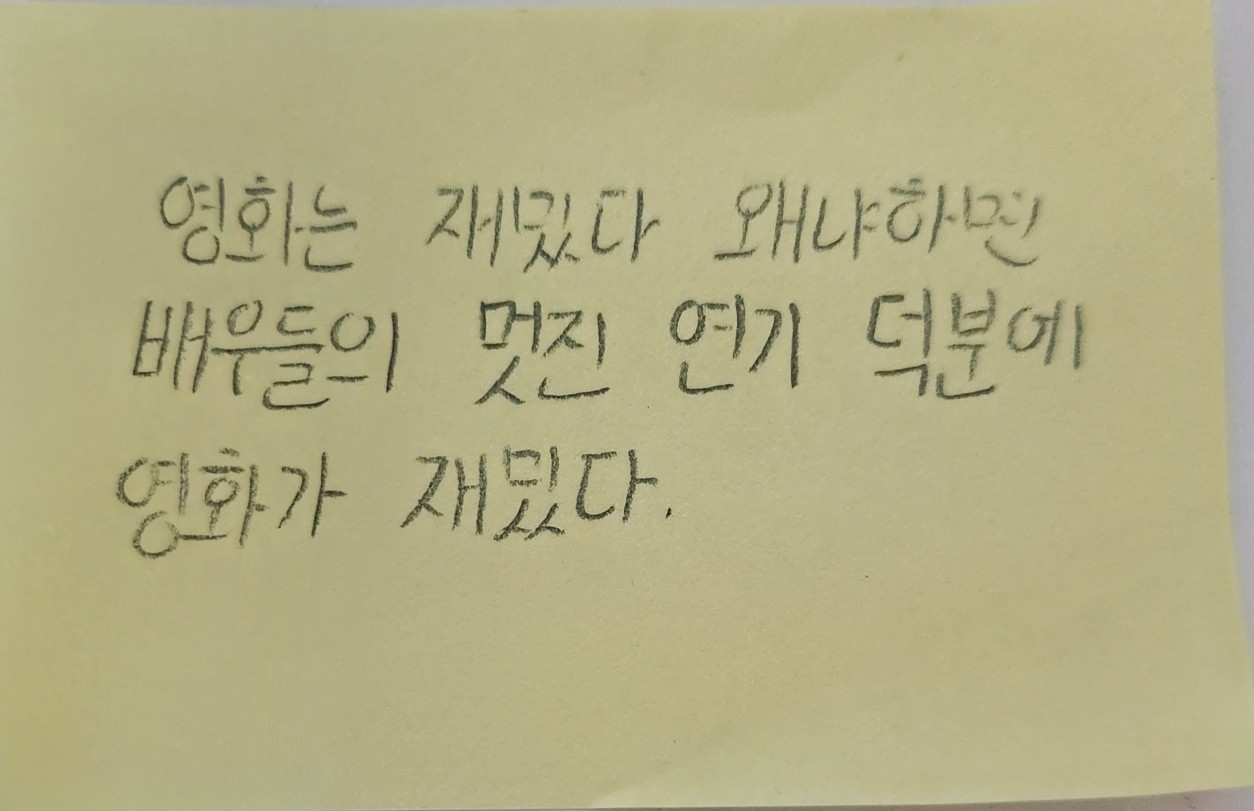 영화는 재밌다 왜냐하면
배우들의 멋진 연기 덕분에
영화가 재밌다.